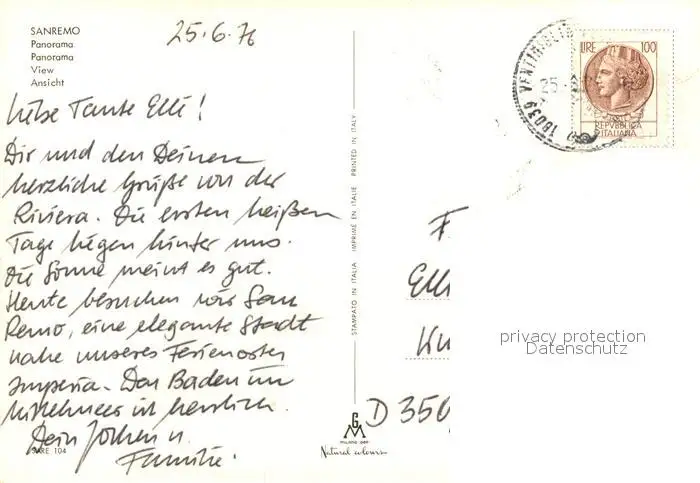 SANREMO
Panorama
Panorama
View
Ansicht
25.6.76
Liebe Tante Elli!
Dir und den Deinen
herzliche Grüße von der
Riviera. Die ersten heißen
Tage liegen hinter uns.
Die Sonne meint es gut.
Heute besuchen wir San
Remo, eine elegante Stadt
nahe unseres Ferienortes
Imperia. Das Baden im
Mittelmeer ist herrlich.
Dein Jochen u.
Familie.
SARE 104
STAMPATO IN ITALIA IMPRIMÉ EN ITALIE PRINTED IN ITALY
GM
Natural colours
18039 VENTIMIGLIA
25
LIRE 100
REPVBBLICA
ITALIANA
F
Elli
D 350
privacy protection
Datenschutz